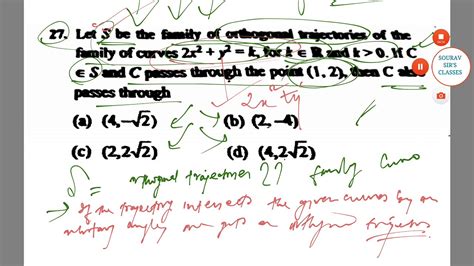 27. Let S be the family of orthogonal trajectories of the
family of curves 2x² + y² = k, for k ∈ ℝ and k > 0. If C
∈ S and C passes through the point (1, 2), then C also
passes through
2x² + y
(a) (4, -√2) (b) (2, -4)
(c) (2, 2√2) (d) (4, 2√2)
S = orthogonal trajectories 27 family Curve
→ If the trajectory intersects the given curves by an
angles one gets an
SOURAV
SIR'S
CLASSES